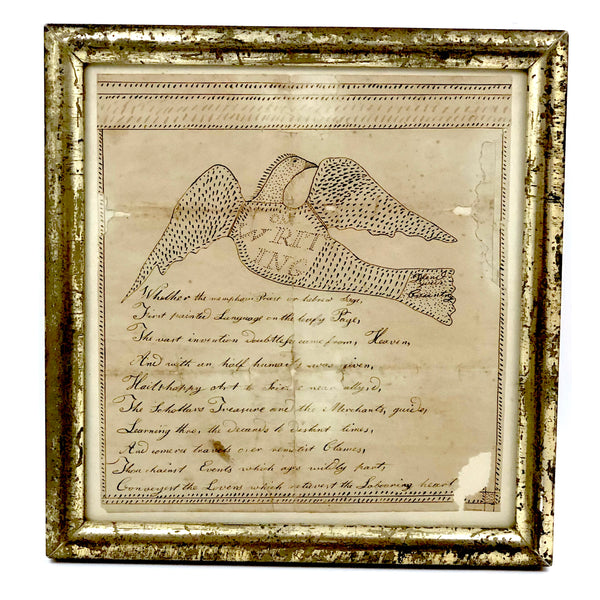 OF
WRIT
ING
County
Whether the Priest or hebrew Sage,
First painted Language on the leafy Page,
The vast invention doubtless came from, Heaven,
And with an half humanity was given,
Hail happy Art to Science near ally,d,
The Schollars Treasure and the Merchants, guide,
Learning thro, the to distant times,
And over remotest Climes,
Thou Events which ages wildly part
Conveyest the Lovers which the Labouring heart